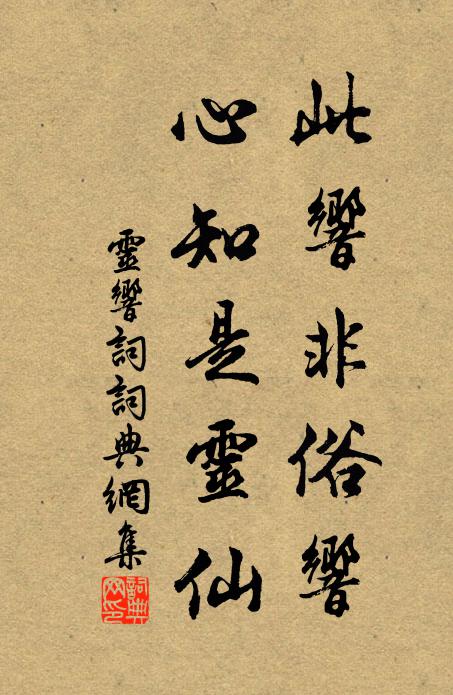 此響非俗響
心知是靈仙
靈響詞詞典網集
詞典網印